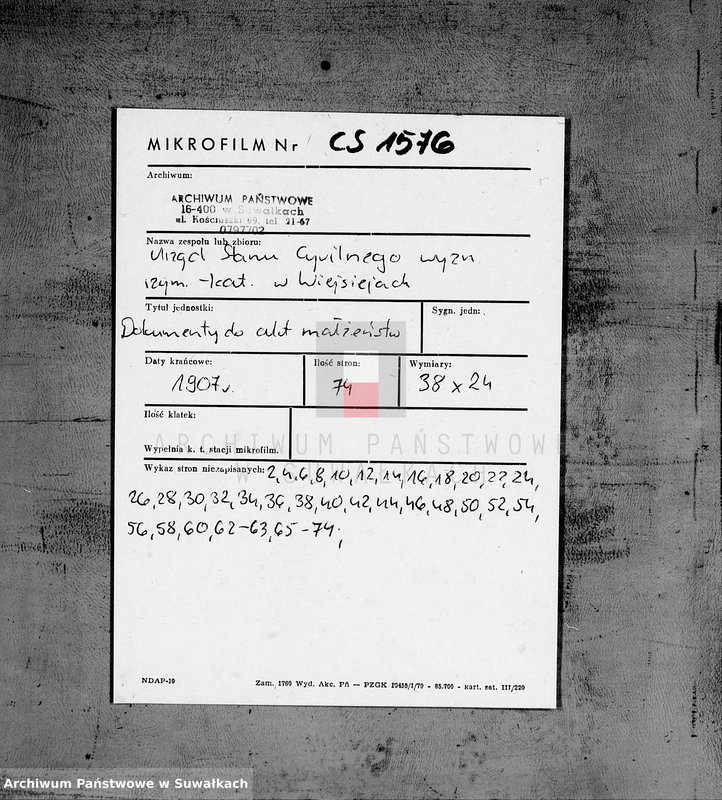 MIKROFILM Nr CS 1576
Archiwum:
ARCHIWUM PAŃSTWOWE
16-400 w Suwałkach
ul. Kościuszki 69, tel. 21-67
0797702
Nazwa zespołu lub zbioru:
Urząd Stanu Cywilnego wyzn.
rzym.-kat. w Wiejsiejach
Tytuł jednostki:
Sygn. jedn:
Dokumenty do akt małżeństw
Daty krańcowe:
Ilość stron:
Wymiary:
1907 r.
74
38 x 24
Ilość klatek:
Wypełnia k. t. stacji mikrofilm.
ARCHIWUM PAŃSTWOWE
W SUWAŁKACH
Wykaz stron niezapisanych: 2,4,6,8,10,12,14,16,18,20,22,24,
26,28,30,32,34,36,38,40,42,44,46,48,50,52,54,
56,58,60,62-63,65-74;
NDAP-10
Zam. 1760 Wyd. Akc. Pń — PZGK 10455/I/79 - 85.700 - kart. sat. III/220
Archiwum Państwowe w Suwałkach